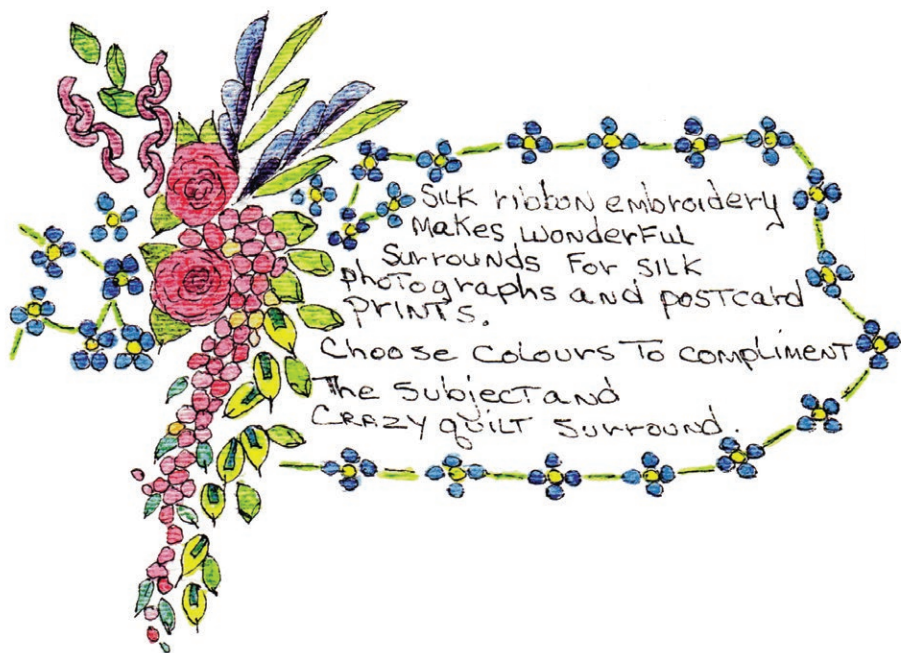 Silk ribbon embroidery
makes wonderful
surrounds for silk
photographs and postcard
prints.
Choose colours to compliment
The subject and
crazy quilt surround.